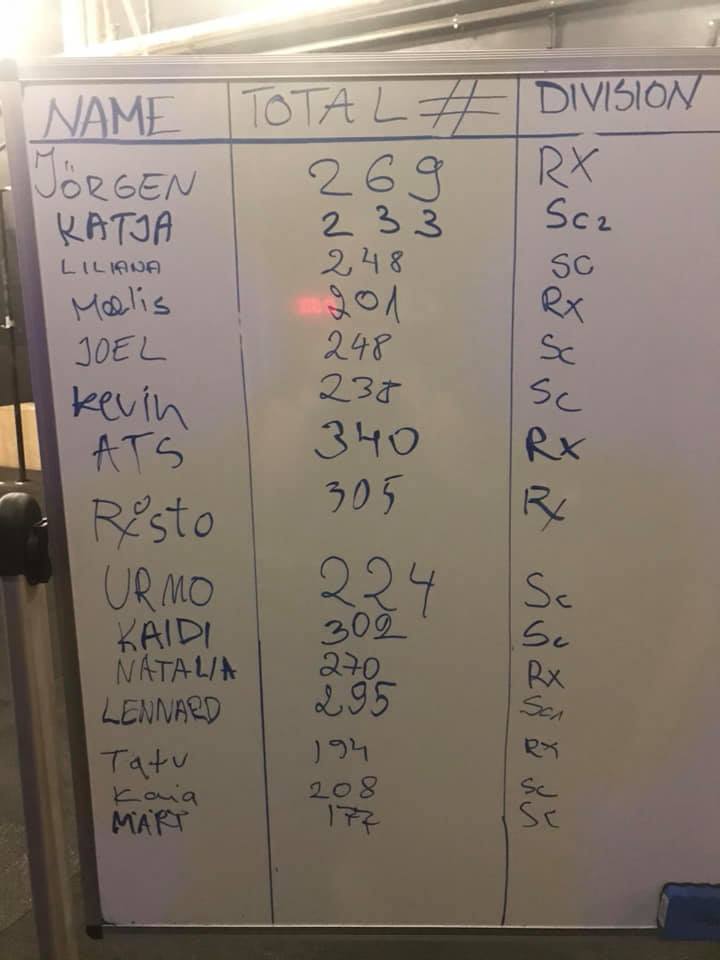 NAME TOTAL # DIVISION
JÖRGEN 269 RX
KATJA 233 Sc2
LILIANA 248 SC
Maelis 201 Rx
JOEL 248 Sc
Kevin 238 Sc
ATS 340 Rx
Risto 305 Rx
URMO 224 Sc
KAIDI 302 Sc
NATALIA 270 Rx
LENNARD 295 Sc1
Tatu 194 Rx
Kaia 208 Sc
MÄRT 177 Sc